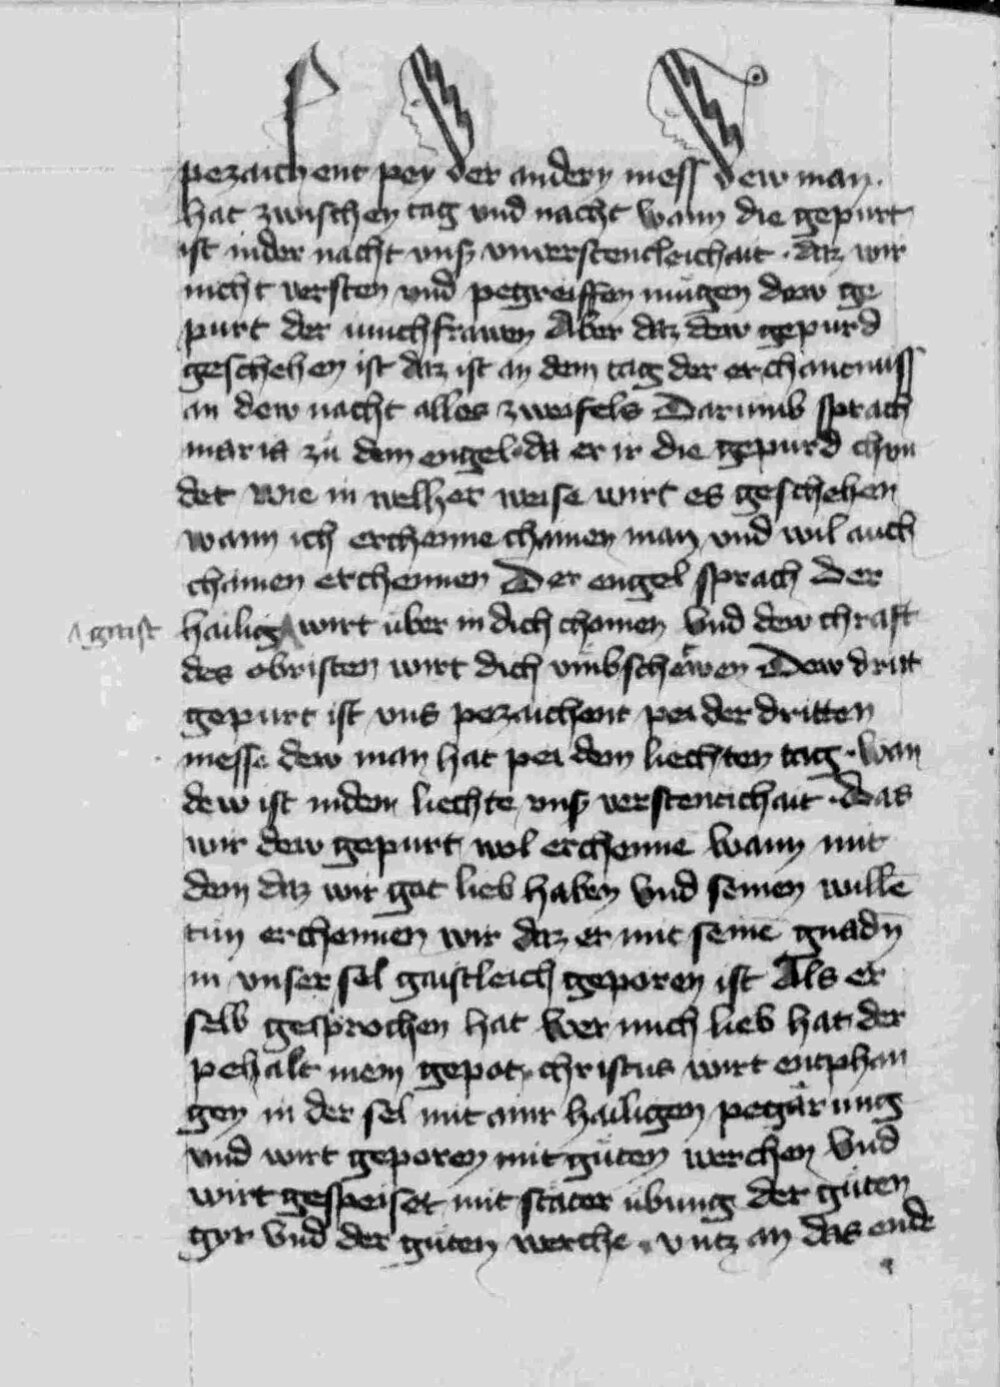 pezaichent pey der andern mess dew man
hat zwischen tag vnd nacht wann die gepurt
ist inder nacht vnss vnuerstencleichait · daz wir
nicht versten vnd pegreiffen mügen dew ge
purt der iunchfrawen Aber daz dew gepurd
geschehen ist daz ist an dem tag der erchantnuss
an dew nacht alles zweifels Darumb sprach
maria zü dem engel · da er ir die gepurd chun
det wie in welher weise wirt es geschehen
wann ich erchenne chainen man vnd wil auch
chainen erchennen Der engel sprach Der
hailig gaist wirt über in dich chomen Vnd dew chraft
des obristen wirt dich vmbschëwen Dew dritt
gepurt ist vns pezaichent pei der dritten
messe dew man hat pei dem liechten tag · wan
dew ist indem liechte vnss verstenticháit · Das
wir dew gepurt wol erchenne wann mit
dem daz wir got lieb haben Vnd seinen wille̅
tün erchennen wir daz er mit seine̅ gnadn̅
in vnser sel gaistleich geporen ist Als er
selb gesprochen hat wer mich lieb hat der
pehalt mein gepot · christus wirt enphan
gen in der sel mit ainr hailigen pegärung
vnd wirt geporen mit güten werchen Vnd
wirt gespeiset mit stäter übung der güten
gyr Vnd der güten werche · vntz an das ende